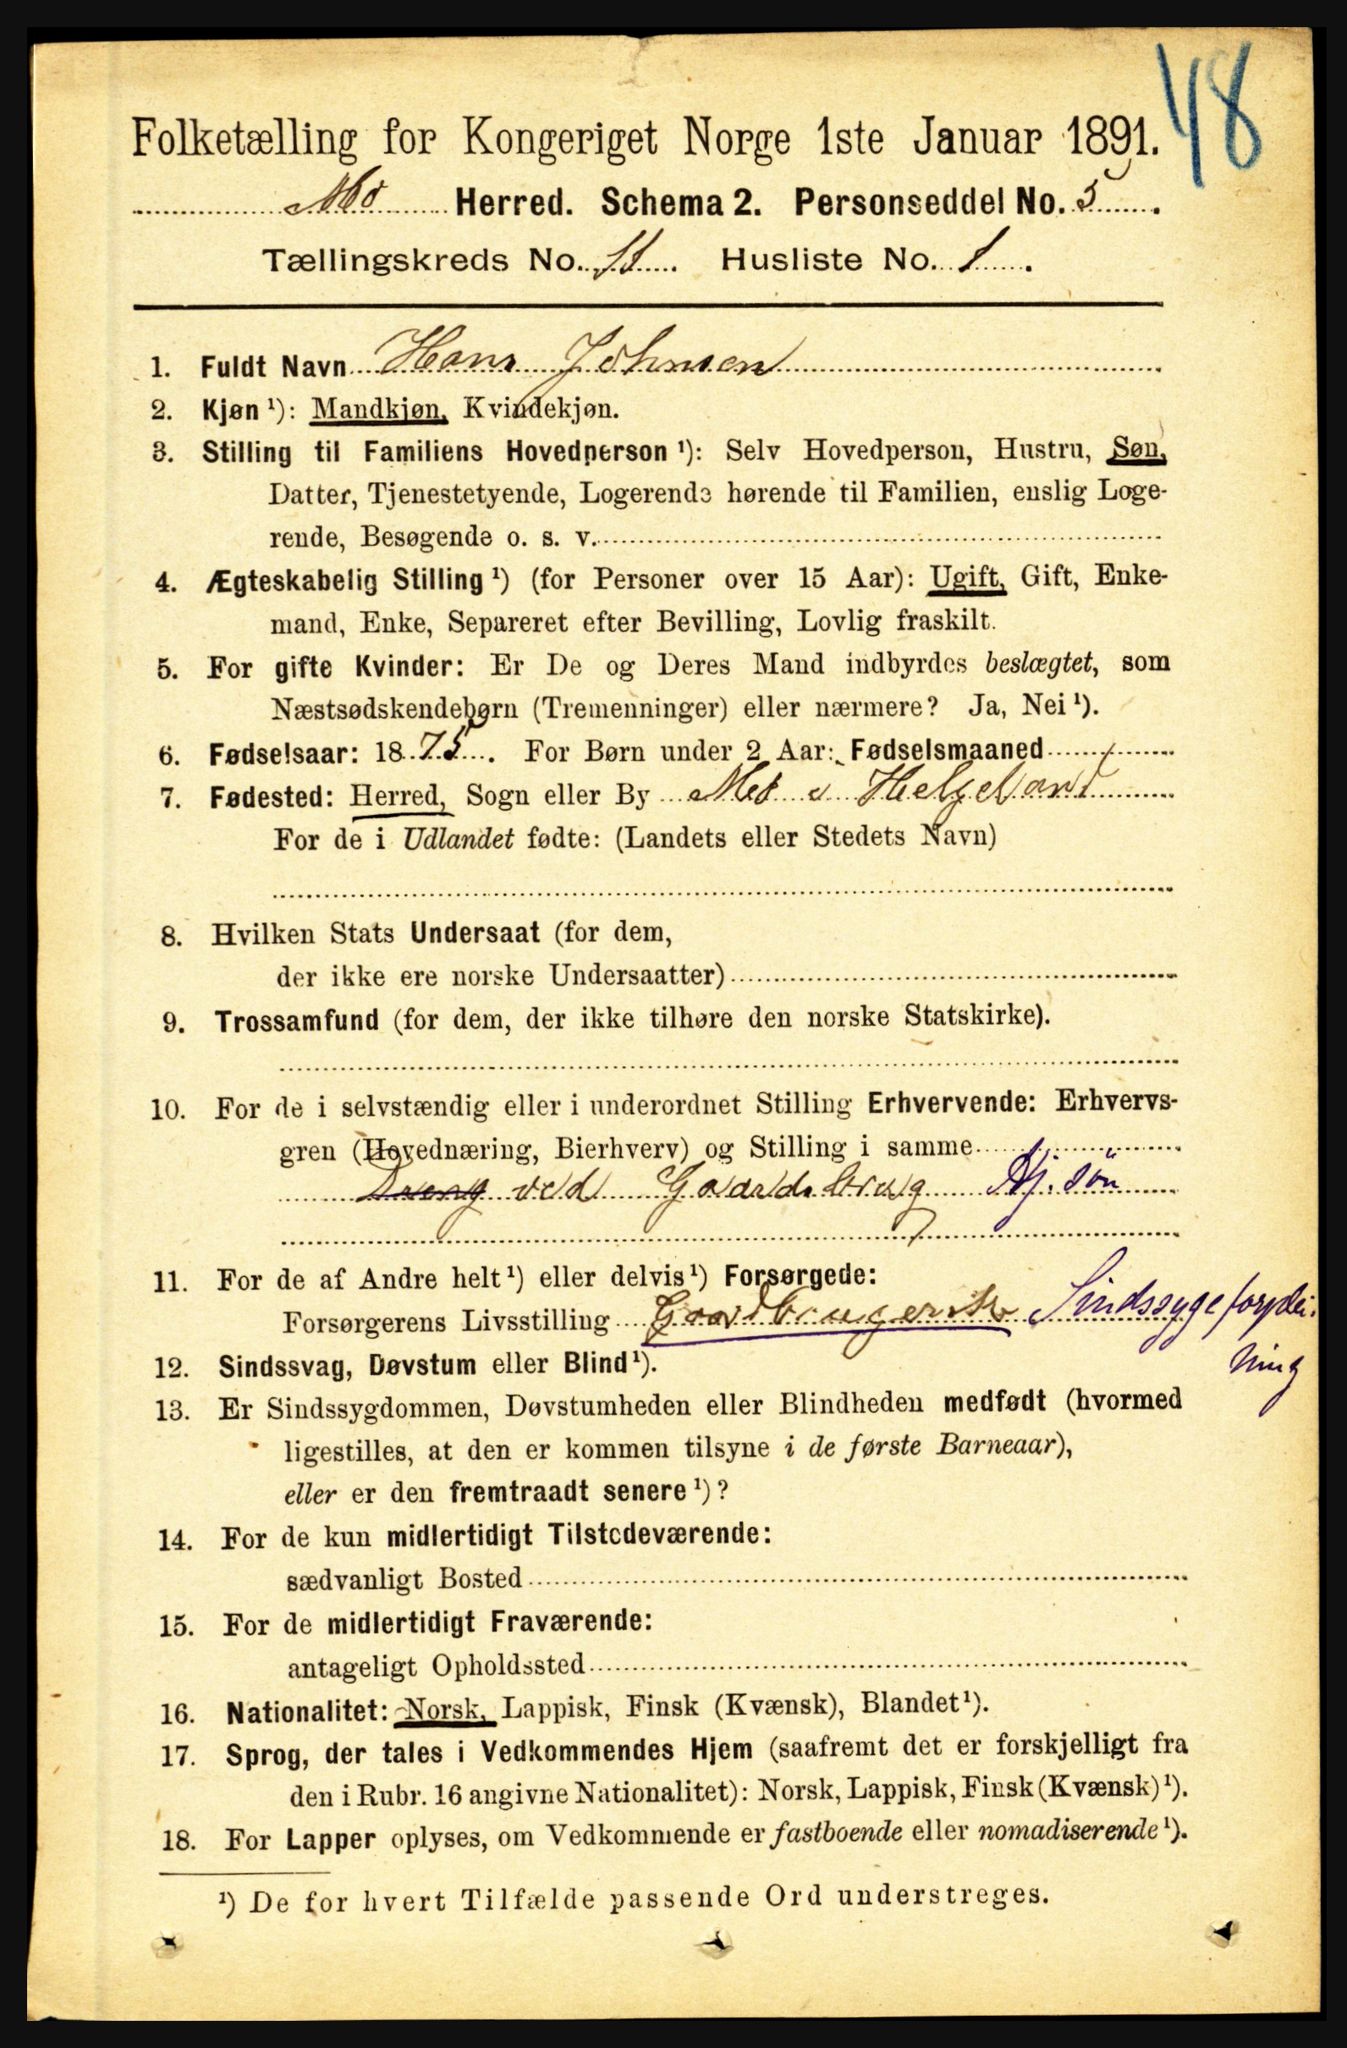 48
Folketælling for Kongeriget Norge 1ste Januar 1891.
Mo Herred. Schema 2. Personseddel No. 5.
Tællingskreds No. 11. Husliste No. 1.
1. Fuldt Navn Hans Johnsen
2. Kjøn ¹): Mandkjøn, Kvindekjøn.
3. Stilling til Familiens Hovedperson ¹): Selv Hovedperson, Hustru, Søn,
Datter, Tjenestetyende, Logerende hørende til Familien, enslig Loge-
rende, Besøgende o. s. v.
4. Ægteskabelig Stilling ¹) (for Personer over 15 Aar): Ugift, Gift, Enke-
mand, Enke, Separeret efter Bevilling, Lovlig fraskilt.
5. For gifte Kvinder: Er De og Deres Mand indbyrdes beslægtet, som
Næstsødskendebørn (Tremenninger) eller nærmere? Ja, Nei ¹).
6. Fødselsaar: 1875. For Børn under 2 Aar: Fødselsmaaned
7. Fødested: Herred, Sogn eller By Mo i Helgeland
For de i Udlandet fødte: (Landets eller Stedets Navn)
8. Hvilken Stats Undersaat (for dem,
der ikke ere norske Undersaatter)
9. Trossamfund (for dem, der ikke tilhøre den norske Statskirke).
10. For de i selvstændig eller i underordnet Stilling Erhvervende: Erhvervs-
gren (Hovednæring, Bierhverv) og Stilling i samme
Dreng ved Gaardsbrug Hj. søn
11. For de af Andre helt ¹) eller delvis ¹) Forsørgede:
Forsørgerens Livsstilling Gaardbruger Sindssygeforplei-
ning
12. Sindssvag, Døvstum eller Blind ¹).
13. Er Sindssygdommen, Døvstumheden eller Blindheden medfødt (hvormed
ligestilles, at den er kommen tilsyne i de første Barneaar),
eller er den fremtraadt senere ¹)?
14. For de kun midlertidigt Tilstedeværende:
sædvanligt Bosted
15. For de midlertidigt Fraværende:
antageligt Opholdssted
16. Nationalitet: Norsk, Lappisk, Finsk (Kvænsk), Blandet ¹).
17. Sprog, der tales i Vedkommendes Hjem (saafremt det er forskjelligt fra
den i Rubr. 16 angivne Nationalitet): Norsk, Lappisk, Finsk (Kvænsk) ¹).
18. For Lapper oplyses, om Vedkommende er fastboende eller nomadiserende ¹).
¹) De for hvert Tilfælde passende Ord understreges.